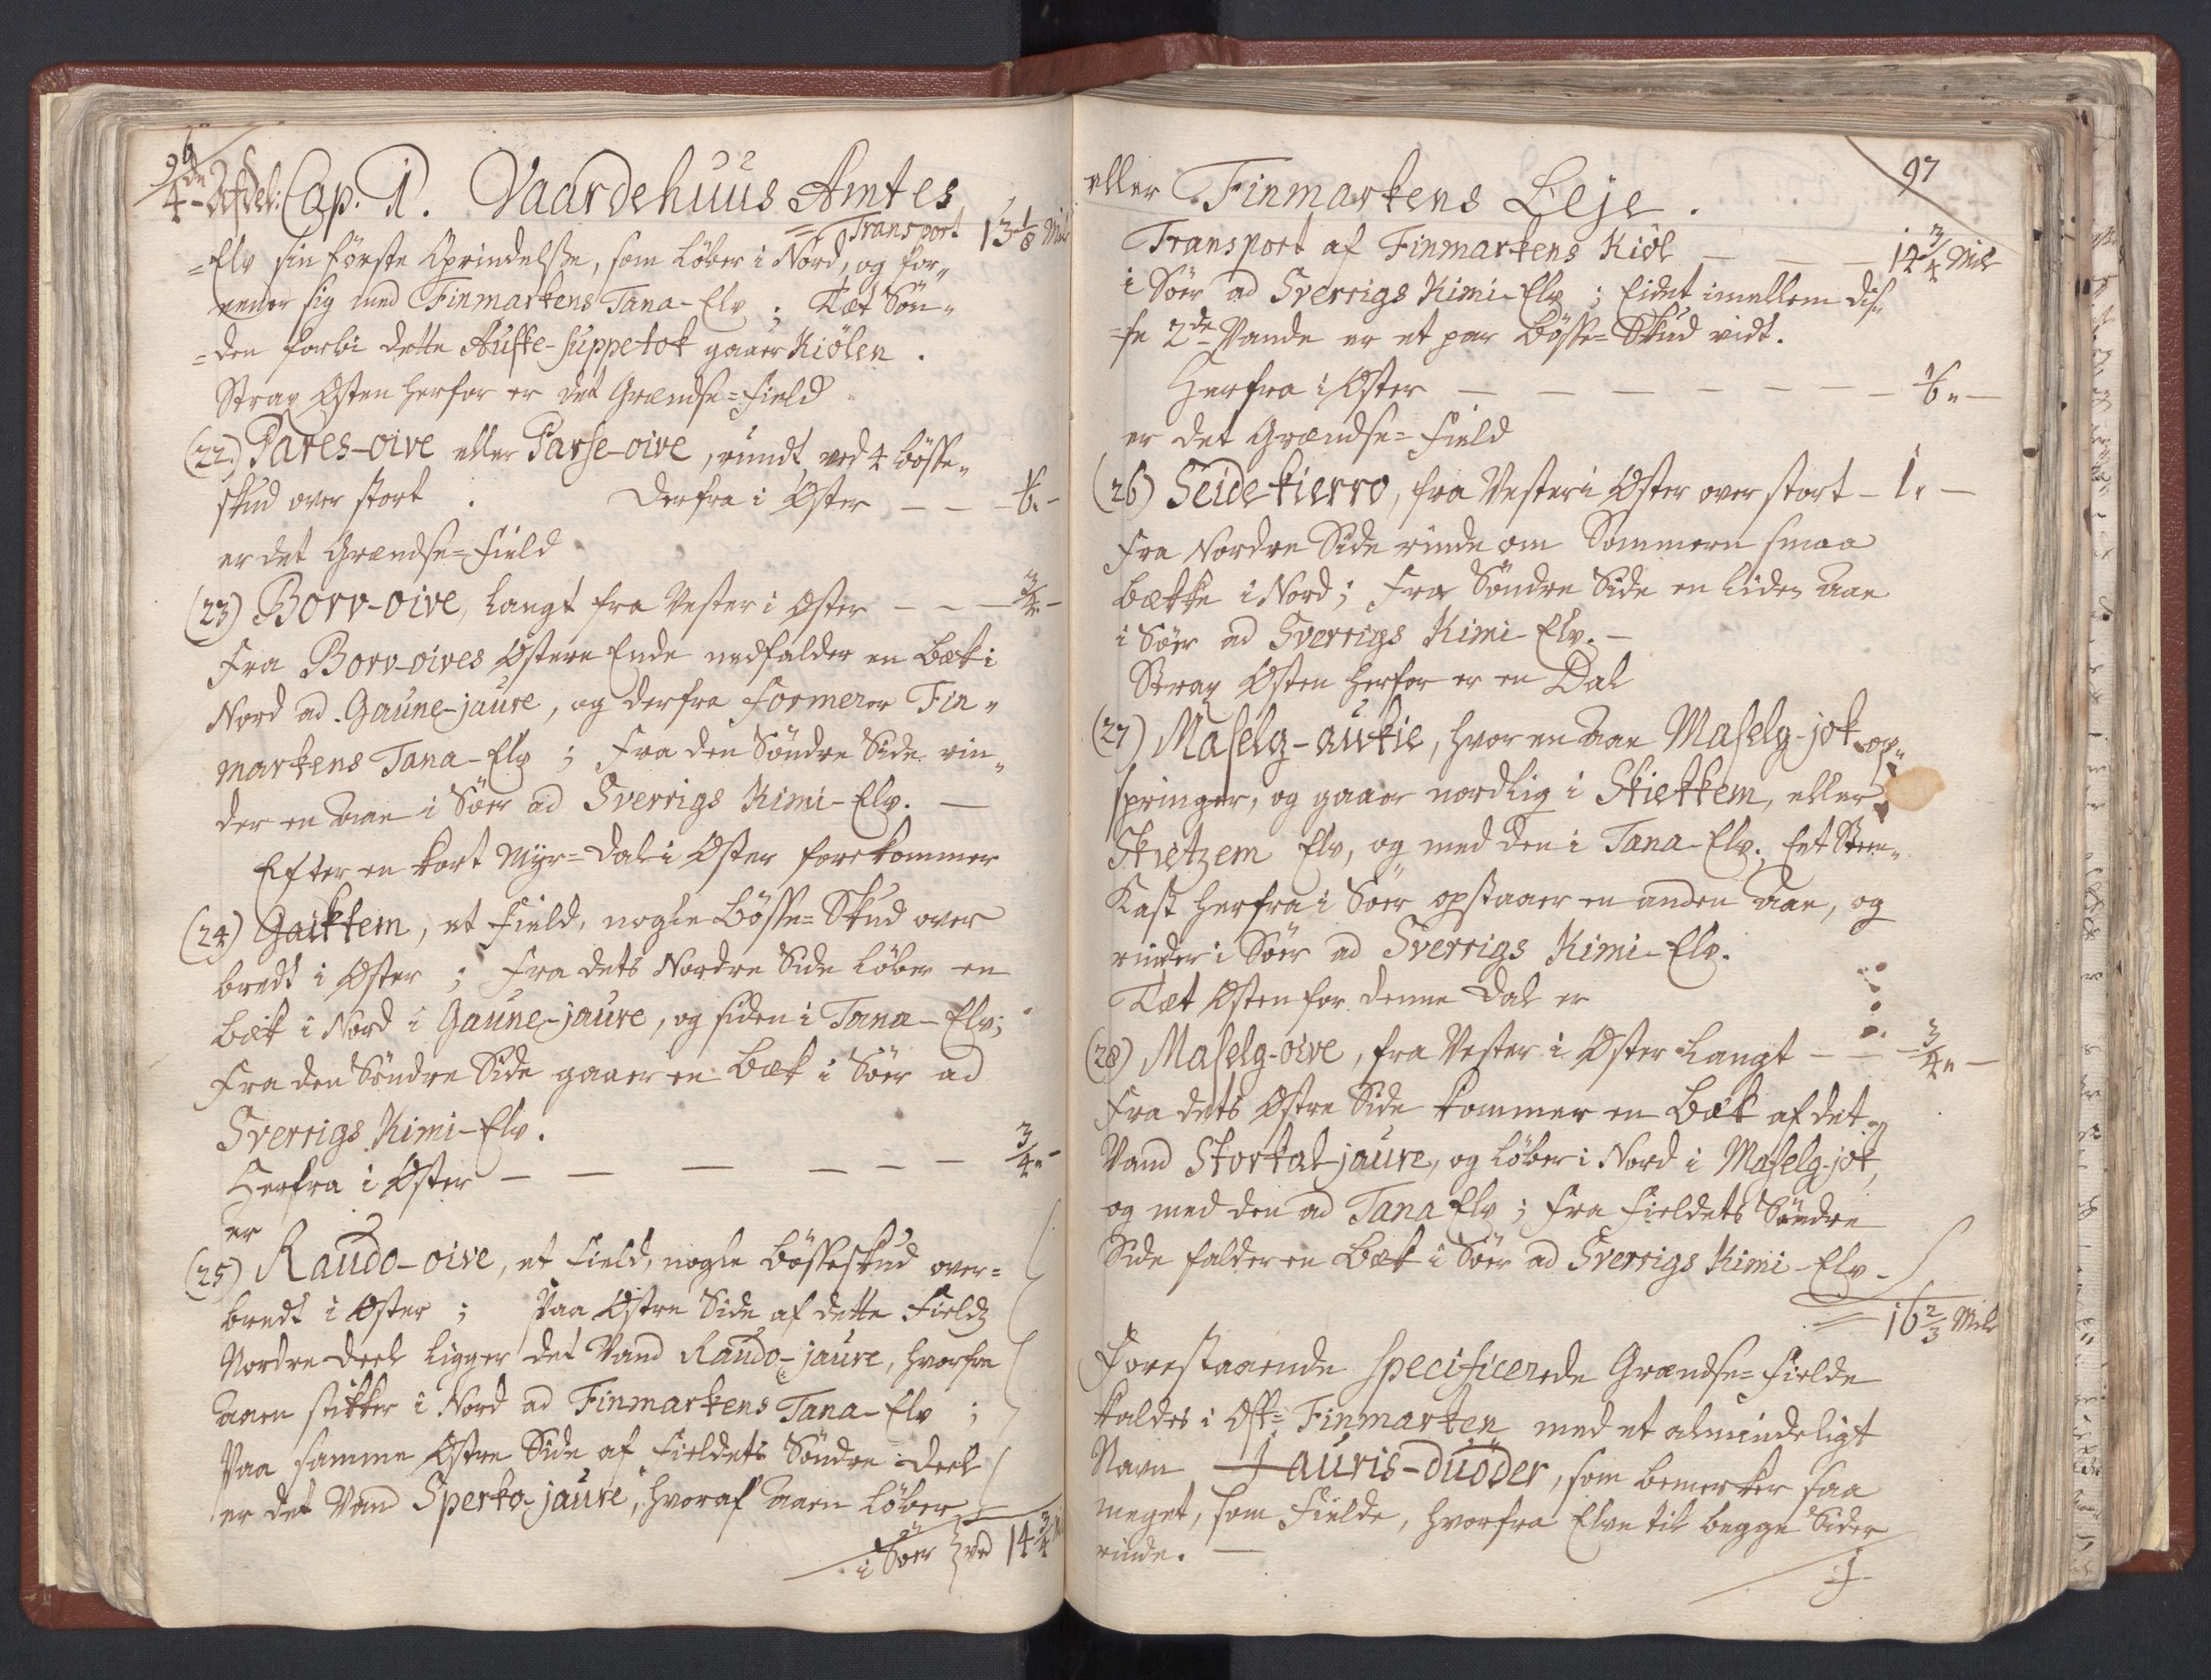 96
4de Afdel: Cap. 1. Vaardehuus Amtes
Transport 13 1/8 Mile
=Elv sin første Oprindelsse, som løber i Nord, og for„
eener sig med Finmarkens Tana-Elv; Tæt Søn„
=den forbi dette Auske-suppetok gaaer Kiølen.
Strax Østen herfor er det Grændse=Field
(22.) Pares-oive eller Parse-oive, rundt, ved 4 bösse„
skud over stort. Derfra i Øster — — — 1/6. —
er det Grændse=Field
(23) Borv-oive, langt fra Vester i Øster — — — 3/4. —
Fra Borv-oives Østere Ende nedfalder en Bæk i
Nord ad Gaune-jaure, og derfra formerer Fin„
markens Tana-Elv; Fra den Søndre Side rin„
der en Aae i Søer ad Sverrigs Kimi-Elv. —
Efter en kort Myr=Dal i Øster forekommer
(24) Gaikkem, et Field, nogle Bösse=Skud over
bredt i Øster; Fra dets Nordre Side løber en
Bæk i Nord i Gaune-jaure, og siden i Tana-Elv;
Fra den Søndre Side gaaer en Bæk i Søer ad
Sverrigs Kimi-Elv.
Herfra i Øster — — — — — — 3/4. —
er
(25) Raudo-oive, et Field, nogle Bösseskud over=
bredt i Øster; Paa Østre Side af dette Fields
Nordre Deel ligger det Vand Raudo-jaure, hvorfra
Aaen stikker i Nord ad Finmarkens Tana-Elv;
Paa samme Østre Side af Fieldets Søndre Deel
er det Vand Sperko-jaure, hvoraf Aaen løber
i Søer 14 3/4
97
eller Finmarkens Leje.
Transport af Finmarkens Kiöl — — — 14 3/4 Mile
i Søer ad Sverrigs Kimi-Elv; Eidet imellem dis„
=se 2de Vande er et par Bösse=Skud vidt.
Herfra i Øster — — — — — — — 1/6 „ —
er det Grændse=Field
(26) Seide-kierro, fra Vester i Øster over stort — 1. —
Fra Nordre Side rinde om Sommern smaa
Bække i Nord; Fra Søndre Side en liden Aae
i Søer ad Sverrigs Kimi-Elv. —
Strax Østen herfor er en Dal
(27) Maselg-aukie, hvor en Aae Maselg-jok op„
springer, og gaaer nordlig i Skiekkem, eller
Skietzem Elv, og med den i Tana-Elv. Eet Steen„
Kast herfra i Søer opstaaer en anden Aae, og
rinder i Søer ad Sverrigs Kimi-Elv.
Tæt Østen for denne Dal er
(28) Maselg-oive, fra Vester i Øster langt — — 3/4 „ —
Fra dets Østre Side kommer en Bæk af det
Vand Storkal-jaure, og løber i Nord i Maselg-jok,
og med den ad Tana Elv; Fra Fieldets Søndre
Side falder en Bæk i Søer ad Sverrigs Kimi-Elv.
16 2/3 Mile
Forestaaende specificerede Grændse=Fielde
kaldes i Øst=Finmarken med et almindeligt
Navn Jauris-duøder, som bemerker saa
meget, som Fielde, hvorfra Elve til begge Sider
rinde. —